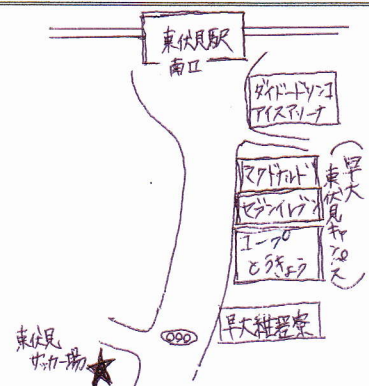 東伏見駅
南口
ダイドードリンコ
アイスアリーナ
マクドナルド
セブンイレブン
コープ
とうきょう
(早大
東伏見キャンパス)
早大維器寮
東伏見
サッカー場